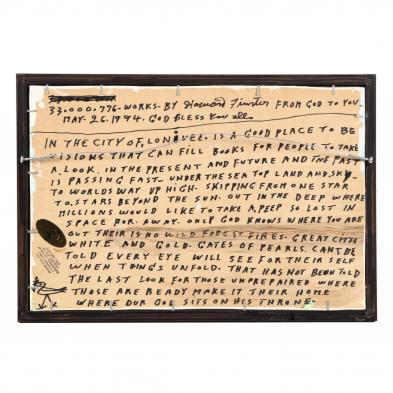 33.000.776-WORKS. BY Howard Finster FROM GOD TO YOU
MAY.26.1994. GOD BLESS You all.
IN THE CITY OF LONIVEL. IS A GOOD PLACE TO BE
VISIONS THAT CAN FILL BOOKS FOR PEOPLE TO TAKE
A. LOOK. IN THE PRESENT AND FUTURE AND THE PAST
IS PASSING FAST. UNDER THE SEA TOP LAND AND SKY
TO WORLDS WAY UP HIGH. SKIPPING FROM ONE STAR
TO. STARS BEYOND THE SUN. OUT IN THE DEEP WHERE
MILLIONS WOULD LIKE TO TAKE A. PEEP SO LOST IN
SPACE FOR. AWAY. ONLY GOD KNOWS WHERE YOU ARE
OUT THEIR IS NO WILD FOREST FIRES. GREAT CITYS
WHITE AND GOLD. GATES OF PEARLS. CANT BE
TOLD EVERY EYE WILL SEE FOR THEIR SELF
WHEN THINGS UNFOLD. THAT HAS NOT BEEN TOLD
THE LAST LOOK FOR THOSE UNPREPAIRED WHERE
THOSE ARE READY MAKE IT THEIR HOME
WHERE OUR GOD SITS ON HIS THRONE.